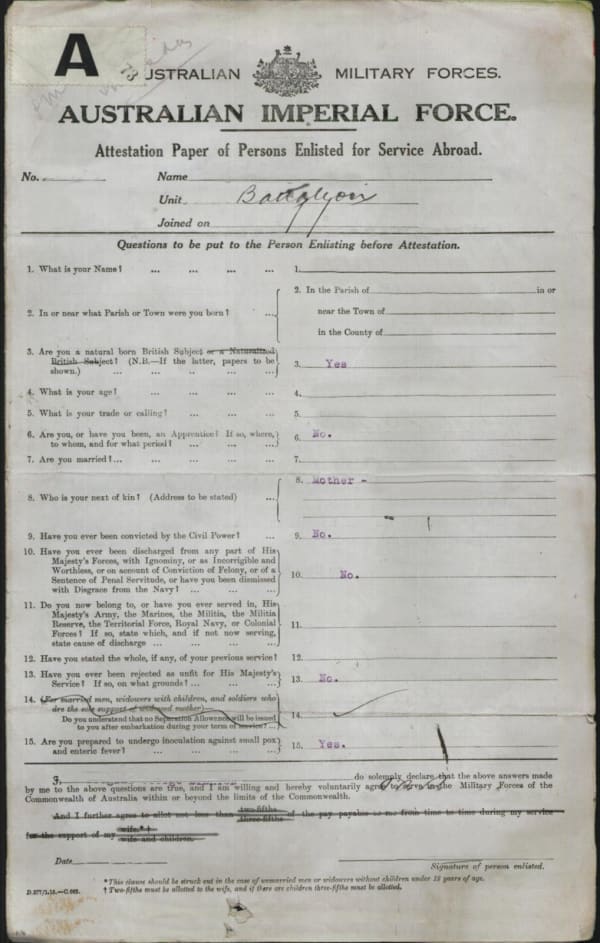 A
73
AUSTRALIAN MILITARY FORCES.
AUSTRALIAN IMPERIAL FORCE.
Attestation Paper of Persons Enlisted for Service Abroad.
No. Name
Unit Battalion
Joined on
Questions to be put to the Person Enlisting before Attestation.
1. What is your Name? ... ... ... ... 1.
2. In the Parish of in or
2. In or near what Parish or Town were you born? ... near the Town of
in the County of
3. Are you a natural born British Subject or a Naturalized
British Subject? (N.B.—If the latter, papers to be 3. Yes
shown.) ... ... ... ... ...
4. What is your age? ... ... ... ... 4.
5. What is your trade or calling? ... ... ... 5.
6. Are you, or have you been, an Apprentice? If so, where, 6. No.
to whom, and for what period? ... ... ...
7. Are you married?... ... ... ... ... 7.
8. Mother -
8. Who is your next of kin? (Address to be stated) ...
9. Have you ever been convicted by the Civil Power? ... 9. No.
10. Have you ever been discharged from any part of His
Majesty's Forces, with Ignominy, or as Incorrigible and
Worthless, or on account of Conviction of Felony, or of a 10. No.
Sentence of Penal Servitude, or have you been dismissed
with Disgrace from the Navy? ... ... ...
11. Do you now belong to, or have you ever served in, His
Majesty's Army, the Marines, the Militia, the Militia
Reserve, the Territorial Force, Royal Navy, or Colonial 11.
Forces? If so, state which, and if not now serving,
state cause of discharge ... ... ... ...
12. Have you stated the whole, if any, of your previous service? 12.
13. Have you ever been rejected as unfit for His Majesty's 13. No.
Service? If so, on what grounds? ... ... ...
14. (For married men, widowers with children, and soldiers who
are the sole support of widowed mother)—
Do you understand that no Separation Allowance will be issued 14.
to you after embarkation during your term of service? ...
15. Are you prepared to undergo inoculation against small pox 15. Yes.
and enteric fever? ... ... ... ...
I, do solemnly declare that the above answers made
by me to the above questions are true, and I am willing and hereby voluntarily agree to serve in the Military Forces of the
Commonwealth of Australia within or beyond the limits of the Commonwealth.
And I further agree to allot not less than two-fifths three-fifths of the pay payable to me from time to time during my service
for the support of my wife.*† wife and children.
Date
Signature of person enlisted.
* This clause should be struck out in the case of unmarried men or widowers without children under 18 years of age.
† Two-fifths must be allotted to the wife, and if there are children three-fifths must be allotted.